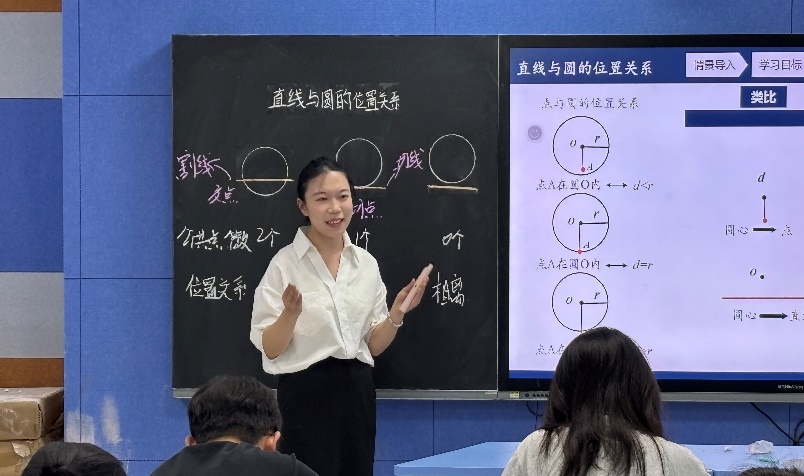 直线与圆的位置关系
割线
交点
切线
切点
公共点个数 2个 1个 0个
位置关系 相离
直线与圆的位置关系
情景导入
学习目标
类比
点与圆的位置关系
O r
A
点A在圆O内 ↔ d<r
O r
A
点A在圆O内 ↔ d=r
O r
点A在
d
圆心 → 点
O
圆心 → 直